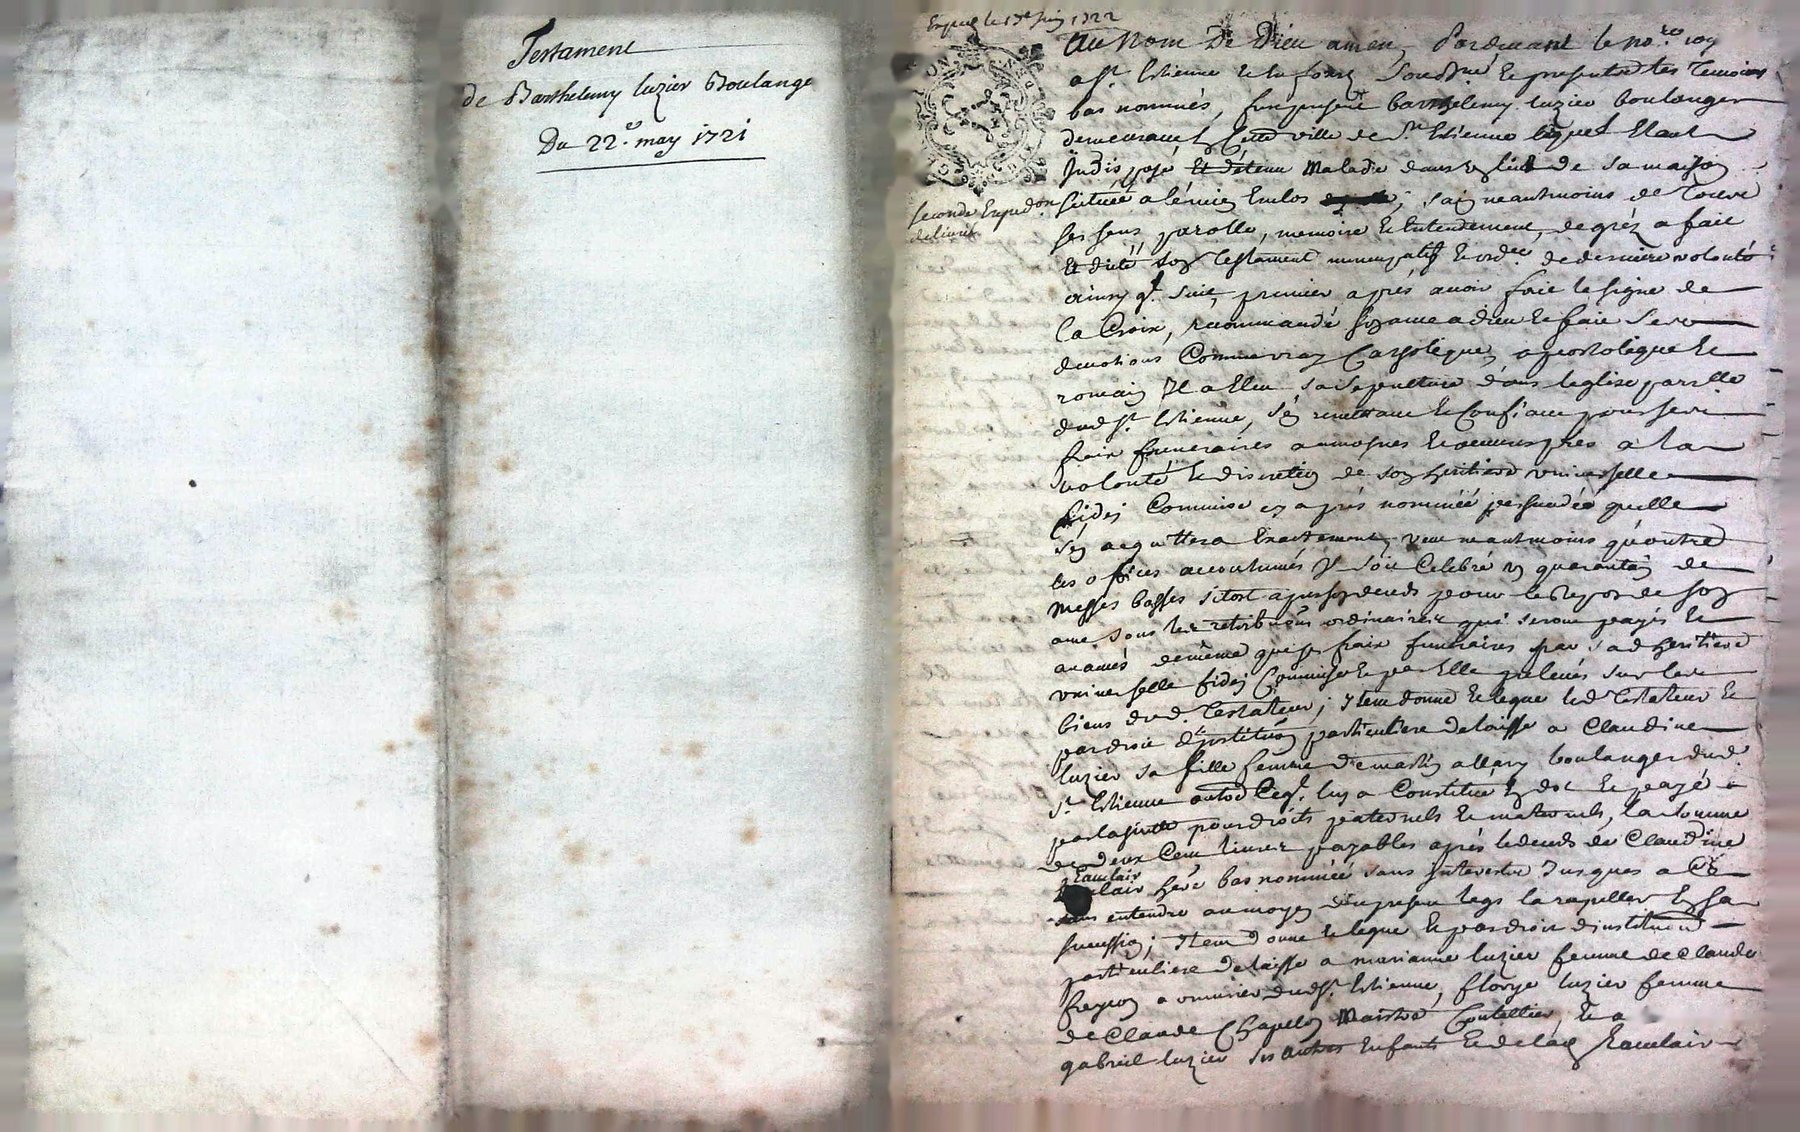 Testament
de Barthelemy luzier Boulange
Du 22.e may 1721
Expedié le 13e juin 1722
seconde Expedon
delivrée
Au Nom De Dieu amen, Pardevant le no.re roy
a St. Estienne en forez soubsné et presents les temoins
bas nommés, fut present barthelemy luzier boulanger
demeurant en cette ville de St. Estienne lequel Etant
Indisposé Et détenu Malade dans un lict de sa maison
scituée a 
 Enclos sain neantmoins de tous
ses sens parolle, memoire et Entendement, de gréz a fait
Et dicté son testament nuncupatif et ordce de derniere volonté
ainsy qt. suit, premier aprés avoir fait le signe de
la Croix, recommandé son ame a dieu et fait ses
devotions Comme vray Catholique, apostolique et
romain Il a Eleu sa sepulture dans leglise parelle
dud St. Estienne, s'en remettant et Confiant pour ses
frais funeraires aumosnes et oeuvres pies a la
volonté et discretion de son heritiere universelle
fidei Commise cy aprés nommée persuadée quelle
s'en acquittera Exactement, veut neantmoins qu'outre
les offices accoutumés Il soit Celebré un quarantain de
Messes basses sitost apres son deceds pour le repos de son
ame sous les retributions ordinaires qui seront payés et
avancés de même que ses frais funeraires par sad heritiere
universelle fidei Commise et par Elle prelevés sur les
biens dud. Testateur; Item donne et legue led Testateur et
par droit d'Institution particuliere delaisse a Claudine
luzier sa fille femme de martin allary boulanger dud.
St. Estienne outre Ceqt. luy a Constitué en dot et payé
par la suitte pour droits paternels et maternels, la somme
de deux Cent livres payables après le deceds de Claudine
Eauclair
 sa bas nommée sans Interests Jusques a ce
sans entendre au moyen du present legs la rapeller En sa
succession; Item donne et legue et par droit d'institution
particuliere delaisse a marianne luzier femme de Claude
freycon armurier dud St. Estienne, florye luzier femme
de Claude Chapellon Maistre Coutellier, Et a
gabriel luzier ses autres Enfants Et de lad Eauclair